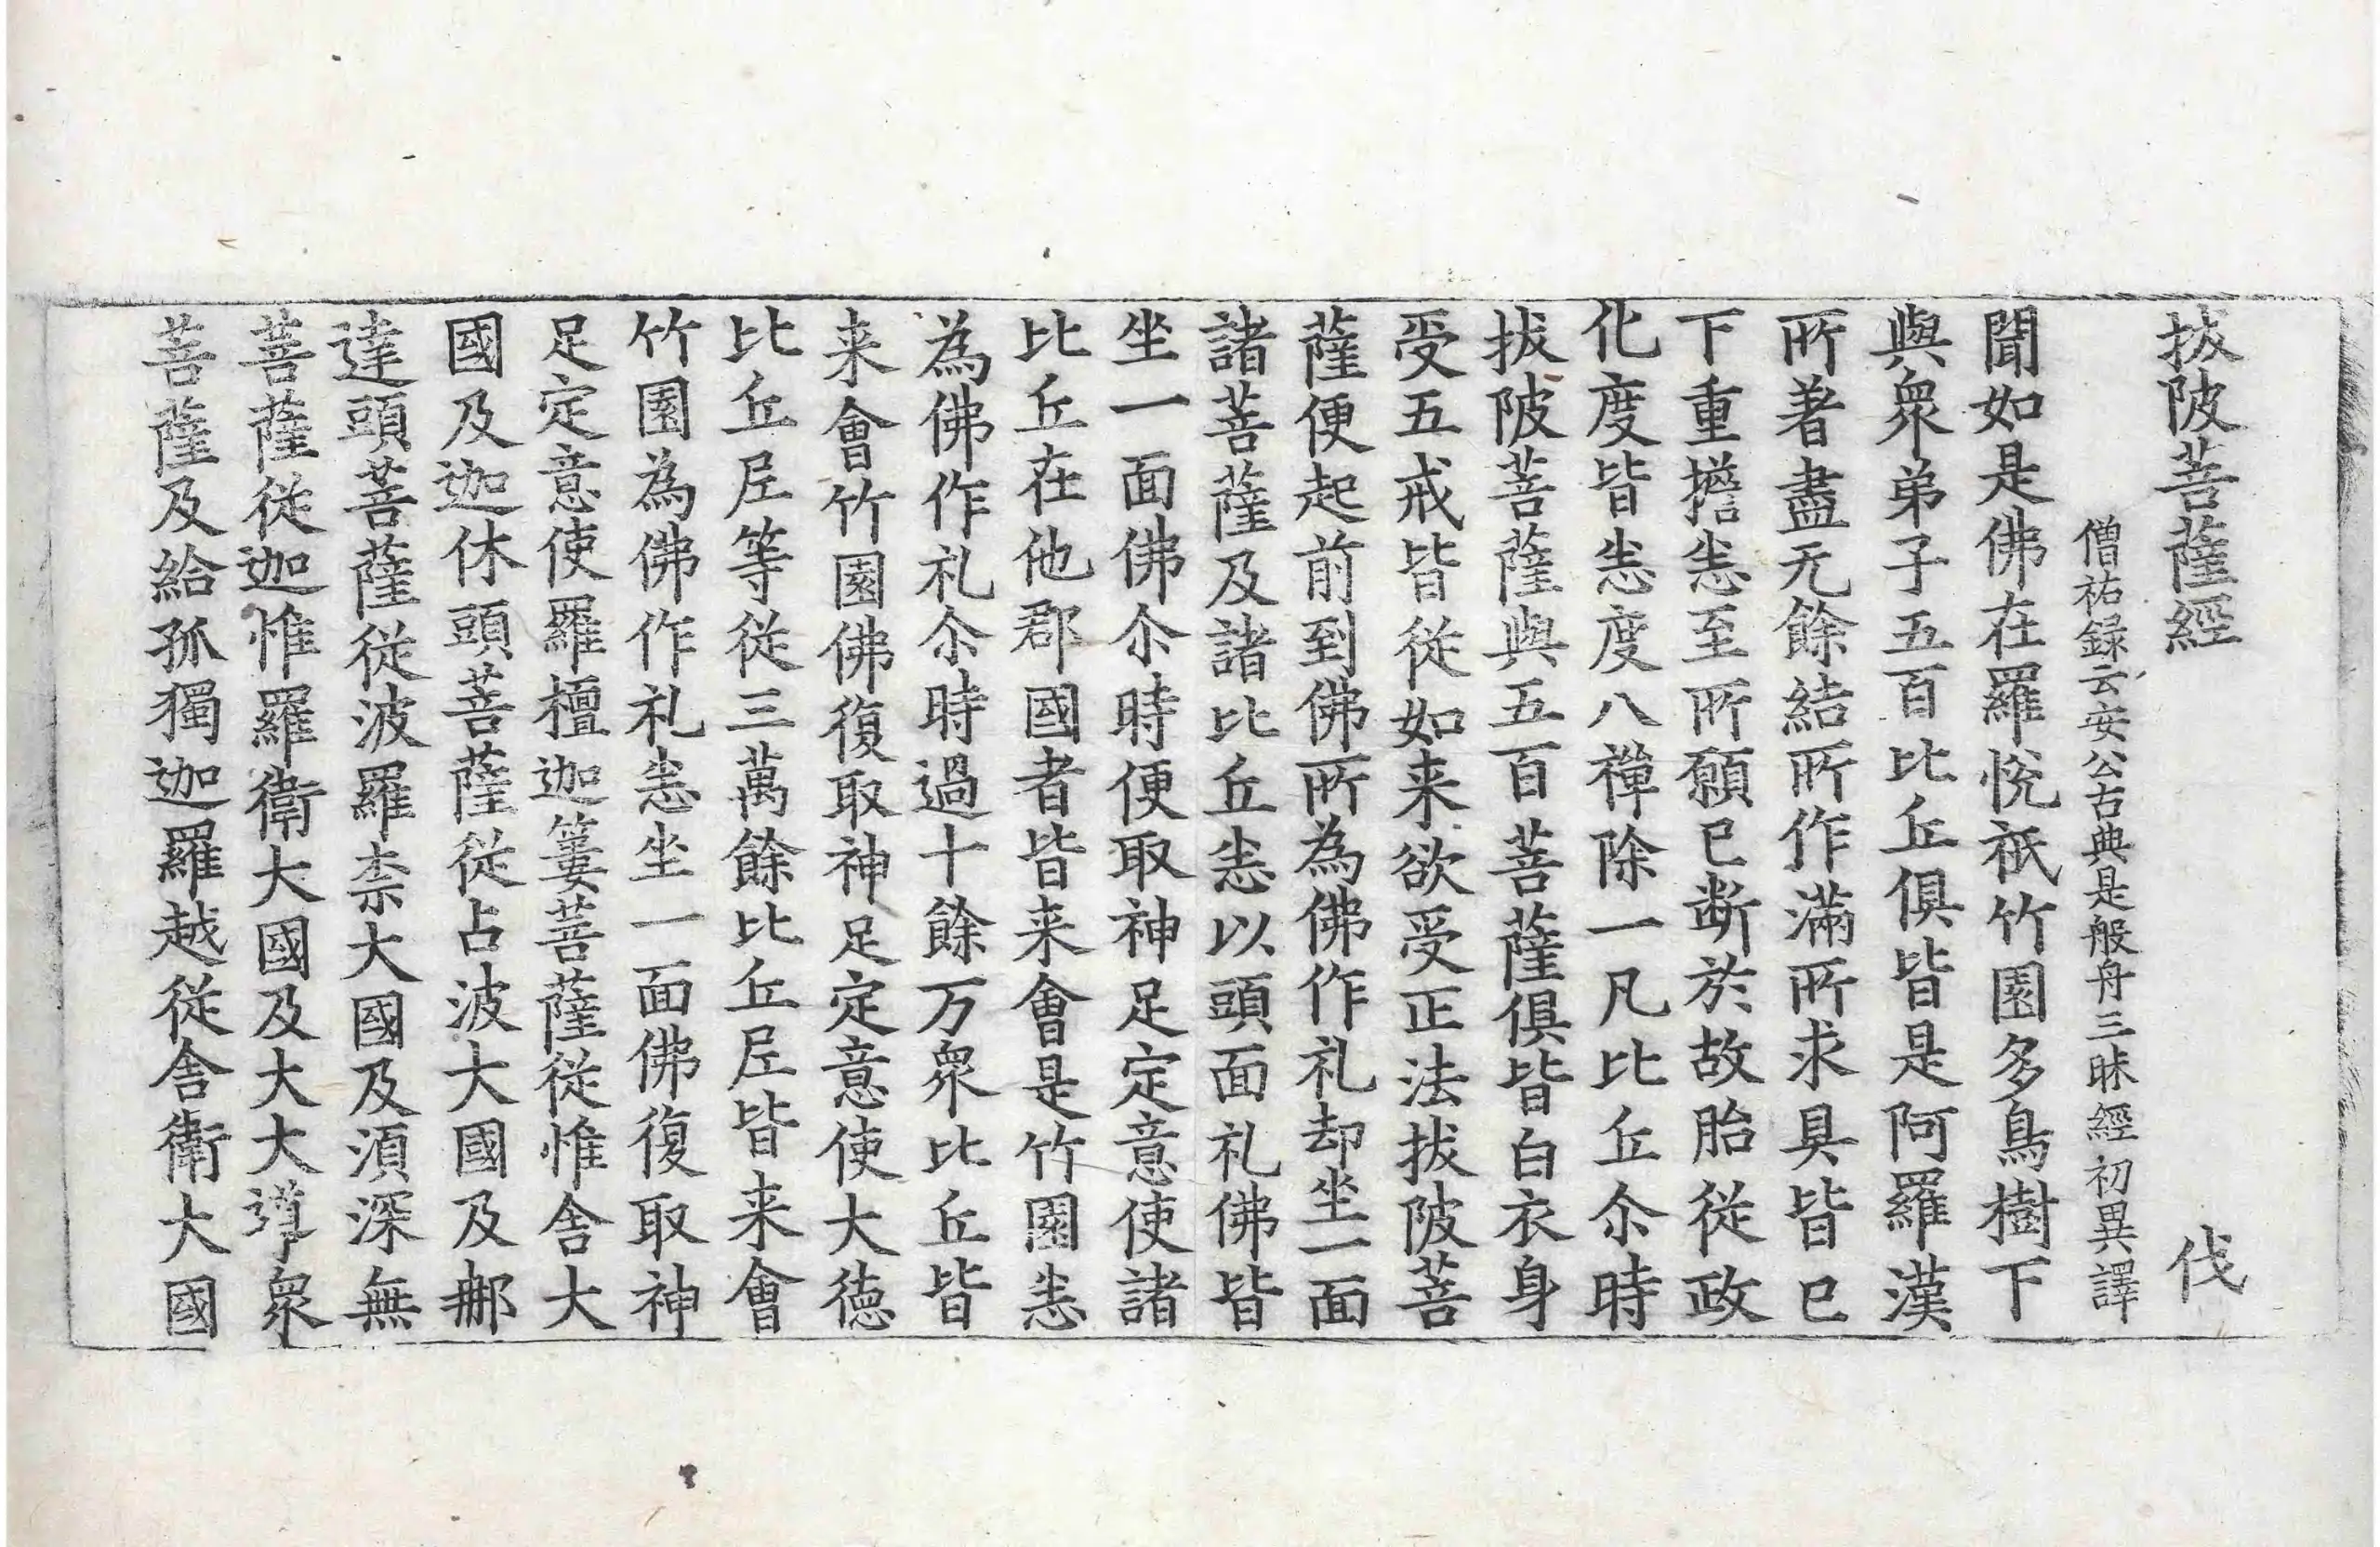 拔陂菩薩經　伐
僧祐録云安公古典是般舟三昧經初異譯
聞如是佛在羅悅祇竹園多鳥樹下
與衆弟子五百比丘俱皆是阿羅漢
所著盡无餘結所作滿所求具皆已
下重擔恙至所願已断於故胎從政
化度皆恙度八禪除一凡比丘尒時
拔陂菩薩與五百菩薩俱皆白衣身
受五戒皆從如来欲受正法拔陂菩
薩便起前到佛所為佛作礼却坐一面
諸菩薩及諸比丘恙以頭面礼佛皆
坐一面佛尒時便取神足定意使諸
比丘在他郡國者皆来會是竹園恙
為佛作礼尒時過十餘万衆比丘皆
来會竹園佛復取神足定意使大德
比丘尼等從三萬餘比丘尼皆来會
竹園為佛作礼恙坐一面佛復取神
足定意使羅檀迦簍菩薩從惟舎大
國及迦休頭菩薩從占波大國及郍
達頭菩薩從波羅柰大國及湏深無
菩薩從迦惟羅衛大國及大大導衆
菩薩及給孤獨迦羅越從舎衛大國